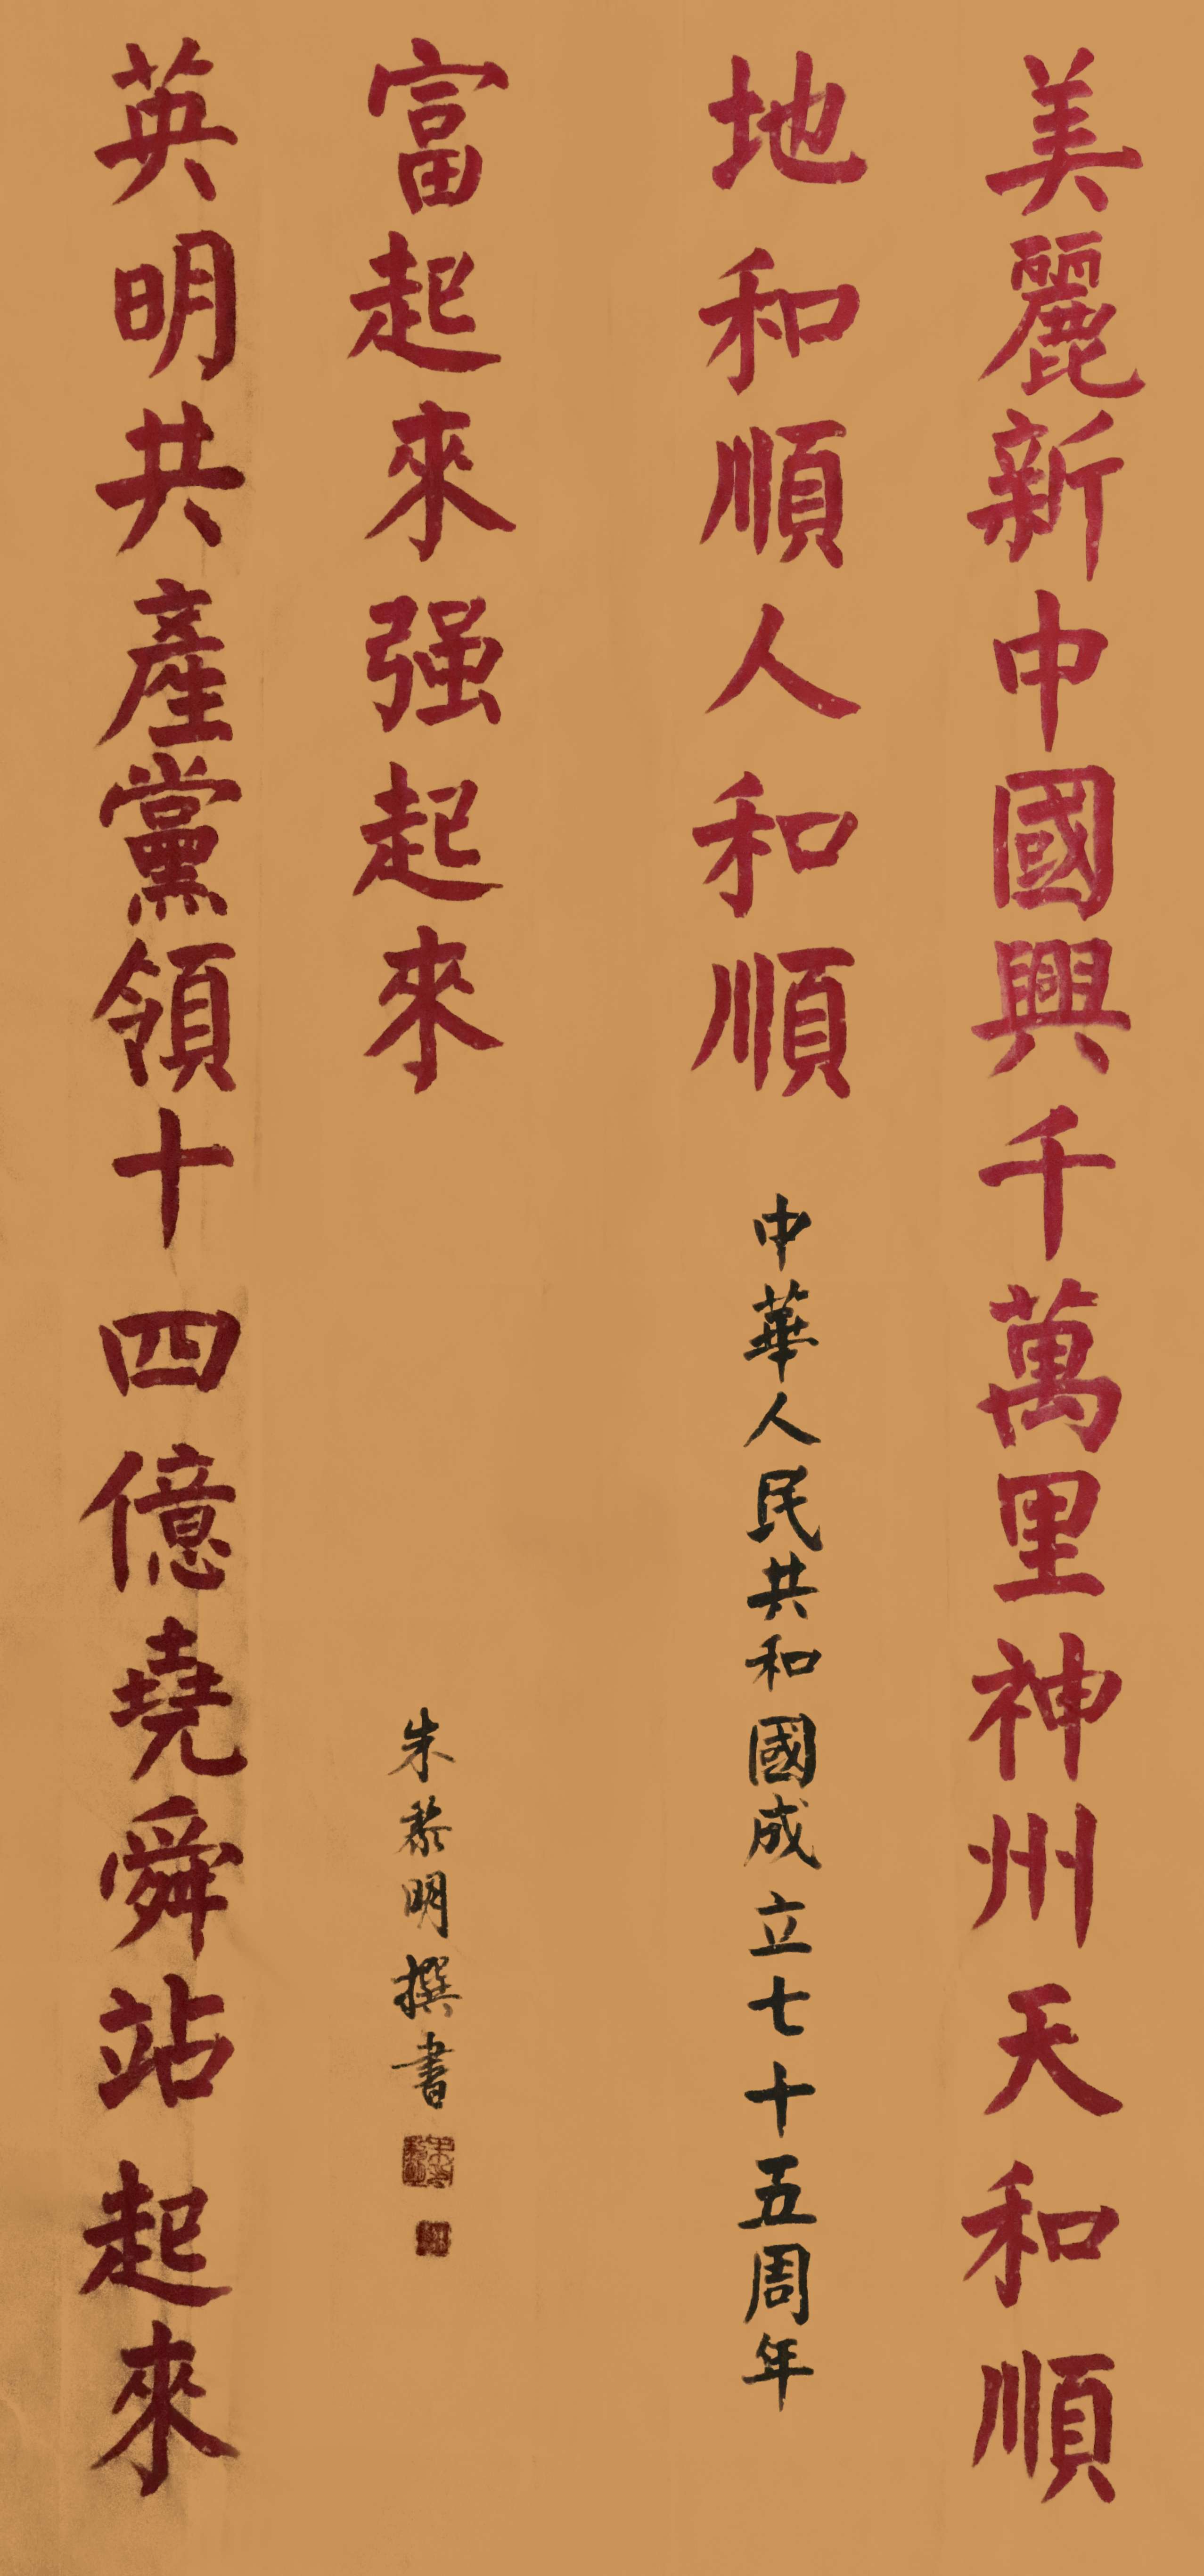 美麗新中國興千萬里神州天和順
地和順人和順
中華人民共和國成立七十五周年
英明共產黨領十四億堯舜站起來
富起來强起來
朱黎明撰書